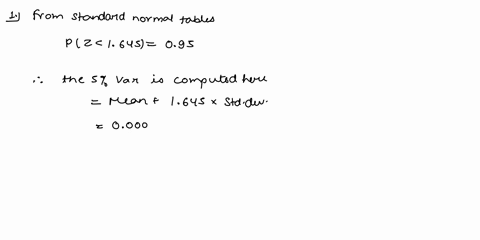 1.) from standard normal tables
P(Z < 1.645) = 0.95
∴ the 5% Var is computed here
= Mean + 1.645 × Std.dev.
= 0.000